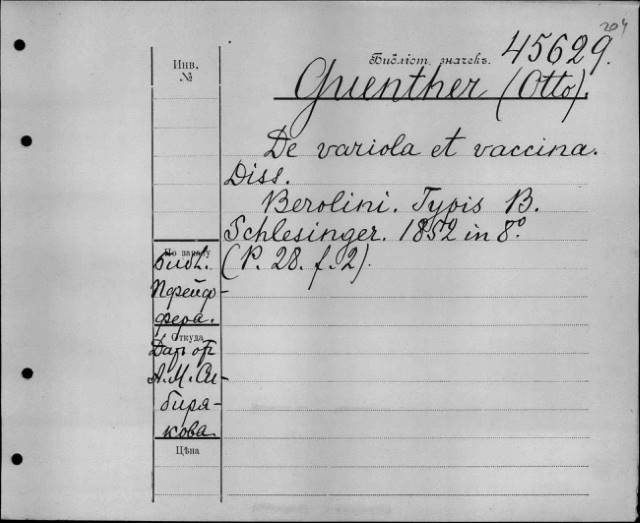 204
Библіот. значекъ. 45629.
Инв.
№
Guenther (Otto).
De variola et vaccina.
Diss.
Berolini. Typis B.
Schlesinger. 1852 in 8º.
(P. 28. f. 2).
По заказу
Библ.
Пфейф-
фера.
Откуда
Дар от
А. М. Си-
биря-
кова.
Цѣна